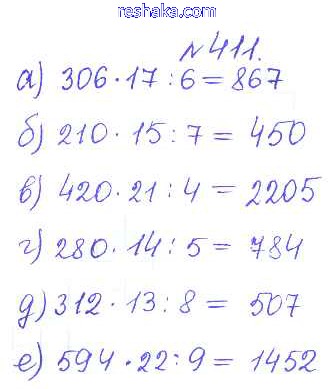 reshaka.com
№411.
а) 306·17:6=867
б) 210·15:7=450
в) 420·21:4=2205
г) 280·14:5=784
д) 312·13:8=507
е) 594·22:9=1452